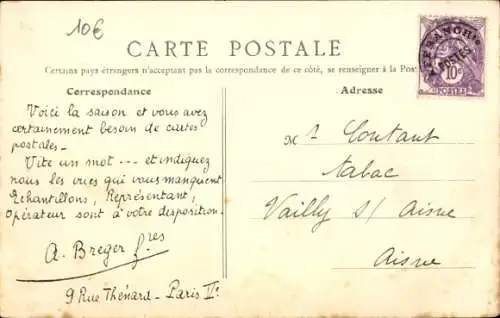 10€
CARTE POSTALE
Certains pays étrangers n'acceptant pas la correspondance de ce côté, se renseigner à la Post
Correspondance
Voici la saison et vous avez
certainement besoin de cartes
postales_
Vite un mot --- et indiquez
nous les vues qui vous manquent
Echantillons, Représentant,
Opérateur sont à votre disposition.
A. Breger fres
9 Rue Thénard_ Paris Ve
Adresse
Mr Coutant
tabac
Vailly s/ Aisne
Aisne
AFFRANCHts
POSTES
10c
POSTES